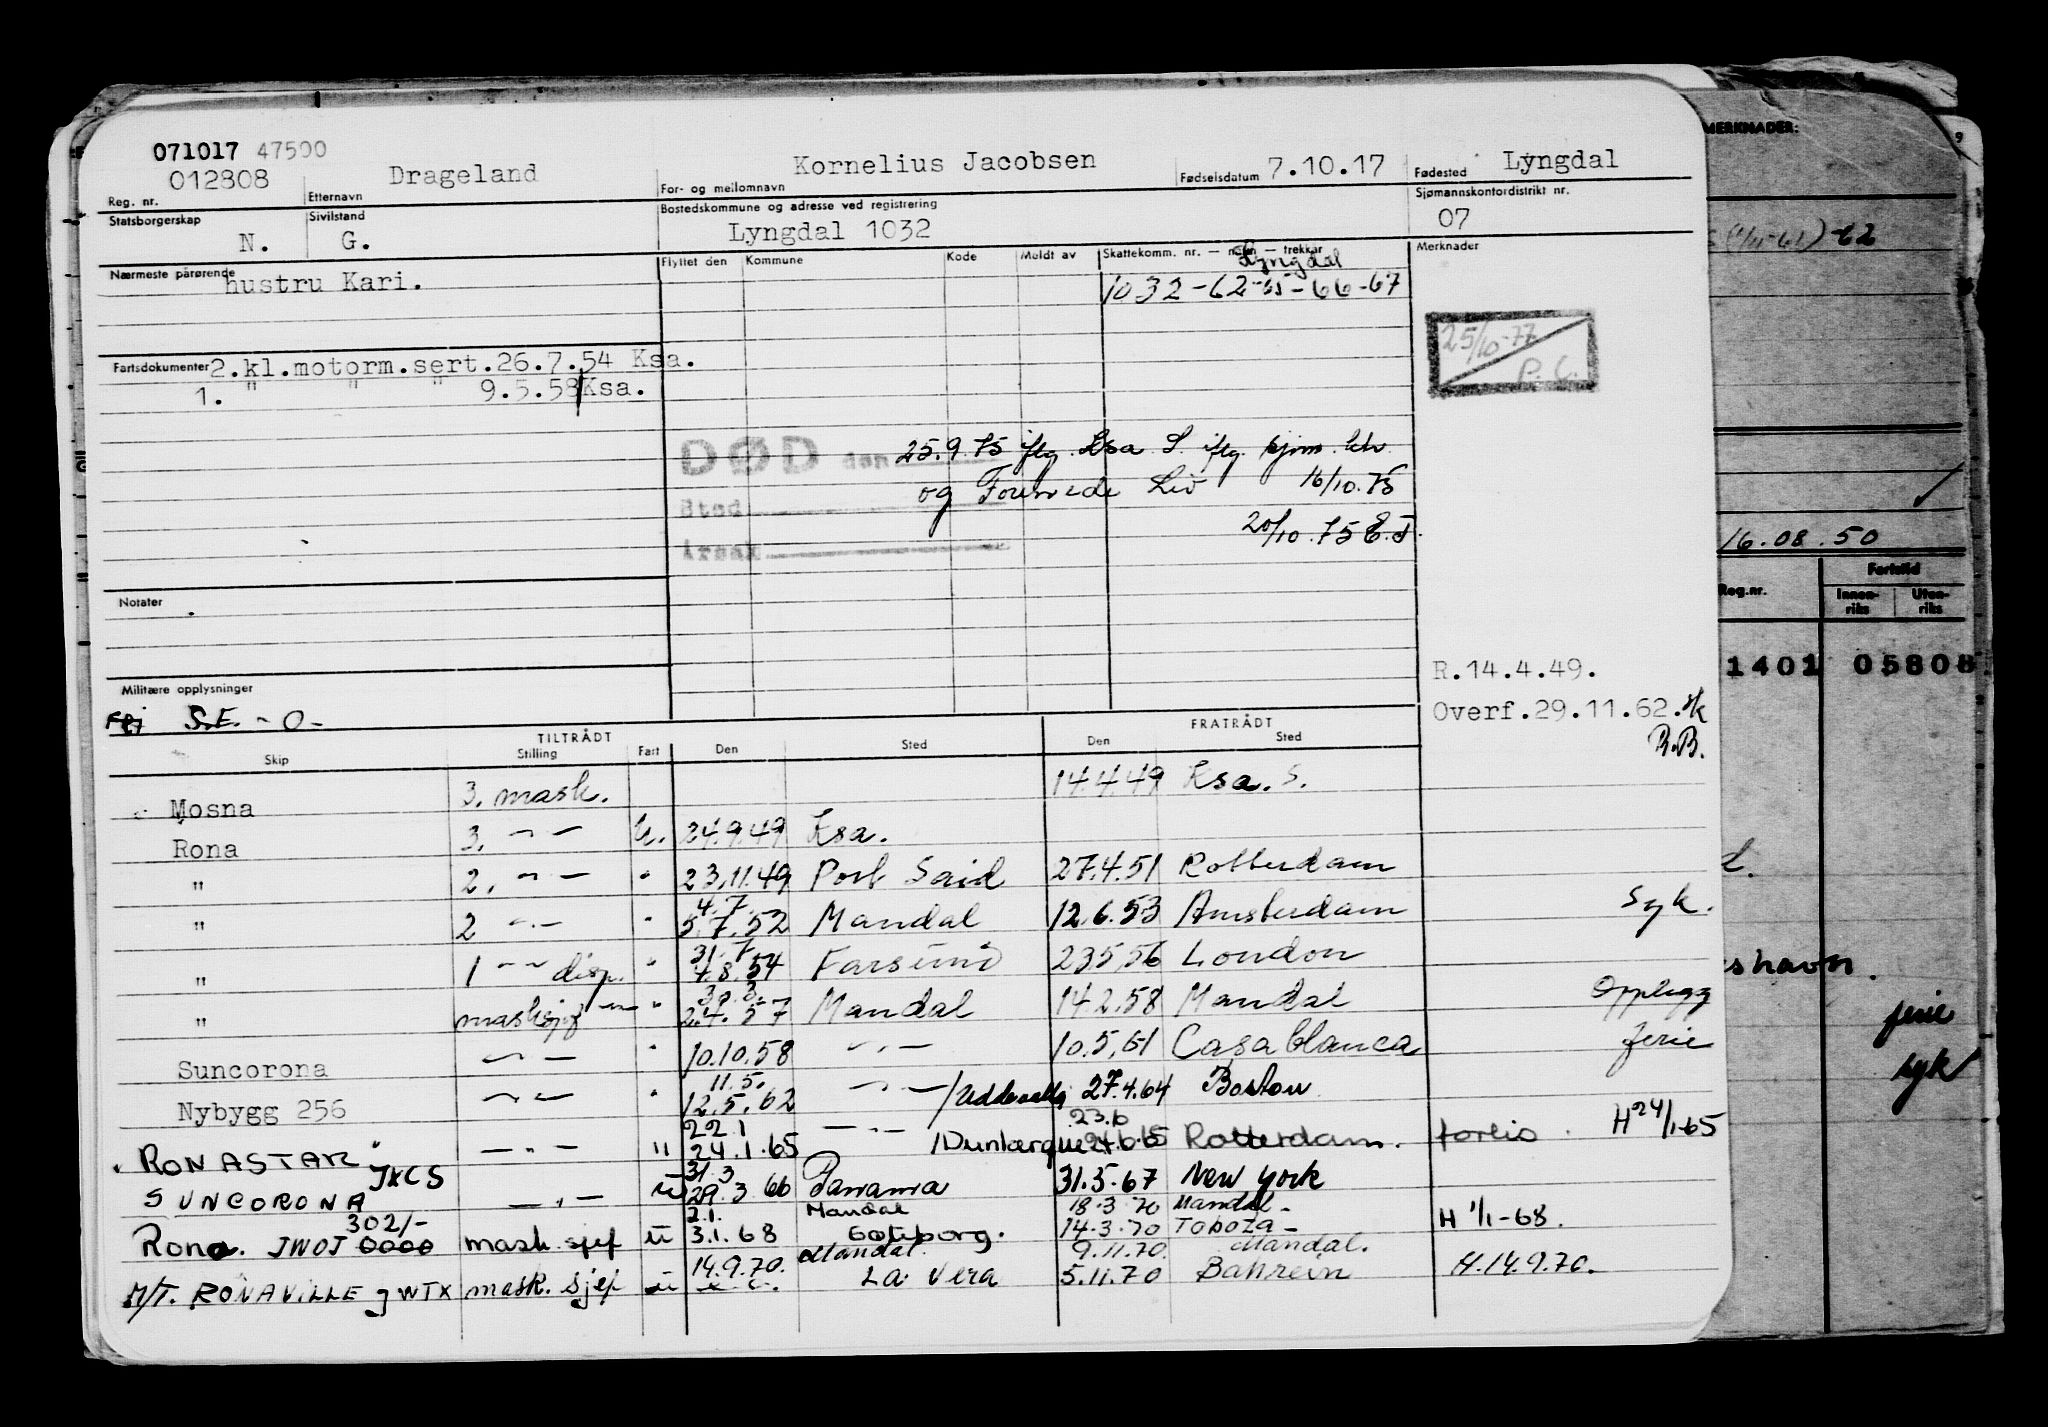 071017 47500
012808 Drageland Kornelius Jacobsen 7.10.17 Lyngdal
Reg. nr. Etternavn For- og mellomnavn Fødselsdatum Fødested
Statsborgerskap Sivilstand Bostedskommune og adresse ved registrering Sjømannskontordistrikt nr.
N. G. Lyngdal 1032 07
Nærmeste pårørende Flyttet den Kommune Kode Meldt av Skattekomm. nr. — navn — trekkår Merknader
hustru Kari. Lyngdal
1032-62-65-66-67
25/10-77
P. C.
Fartsdokumenter 2.kl.motorm.sert.26.7.54 Ksa.
1. " " " 9.5.58 Ksa.
DØD den 25.9.75 iflg. Ksa S. iflg. sjøm. ktr.
Sted og Liv 16/10.75
Årsak 20/10.75 E.J.
Notater
R.14.4.49.
Militære opplysninger
S.E. -0-
Overf.29.11.62.
R.B.
TILTRÅDT FRATRÅDT
Skip Stilling Fart Den Sted Den Sted
Mosna 3. mask. 14.4.49 Ksa. S.
Rona 3. -"- U. 24.9.49 Ksa.
" 2. -"- " 23.11.49 Port Said 27.4.51 Rotterdam
" 2 -"- " 4.7. 5.7.52 Mandal 12.6.53 Amsterdam Syk.
" 1 -"- disp. " 31.7 4.8.54 Farsund 23.5.56 London
" masksjef -"- " 30.3. 2.4.57 Mandal 14.2.58 Mandal Opplegg
Suncorona -"- " 10.10.58 -"- 10.5.61 Casablanca ferie
Nybygg 256 -"- " 11.5. 12.5.62 -"- /Uddevalla 27.4.64 Boston
"RONASTAR" JXCS -"- " 22.1 24.1.65 -"- /Dunkerque 23.6 24.6.65 Rotterdam. H 24/1-65
SUNCORONA -"- U 31.3 29.3.66 Panama 31.5.67 New York
Rona. JWOJ 302/- 0000 mask.sjef U 2.1. 3.1.68 Mandal Göteborg. 18.3.70 Mandal- 14.3.70 H 1/1-68.
M/T. RONAVILLE JWTX mask. sjef U 14.9.70. Mandal La Vera 9.11.70. Mandal. 5.11.70 Bahrein H.14.9.70.
MERKNADER:
-62
16.08.50
Reg.nr. Fartstid
Innen-riks Uten-riks
1401 05808
shavn.
ferie
syk